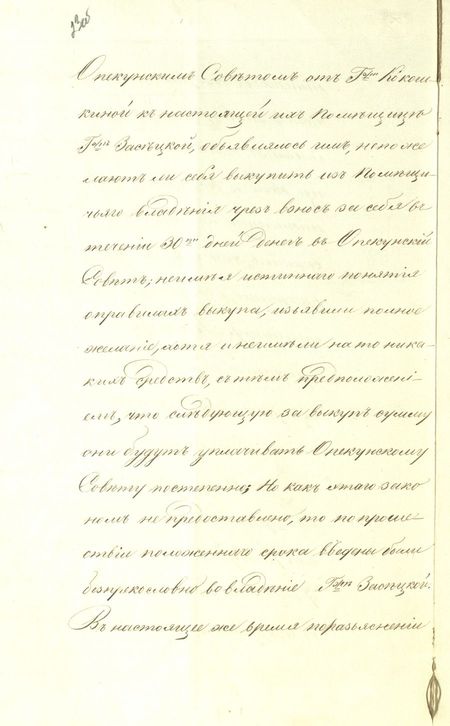 Опекунскимъ Совѣтомъ отъ Г-жи Кокош
киной къ настоящей ихъ Помѣщицѣ
Г-жѣ Засѣцкой, объявлялось имъ, непоже
лаютъ ли себя выкупить изъ Помѣщи
чьяго владѣнія чрезъ взносъ за себя въ
теченіи 30ти дней денегъ въ Опекунскій
Совѣтъ; неимѣя истиннаго понятія
оправилахъ выкупа, изъявили полное
желаніе, хотя и неимѣли на то ника
кихъ средствъ, сътѣмъ предположені
емъ, что слѣдующую за выкупъ сумму
они будутъ уплачивать Опекунскому
Совѣту постепенно; Но какъ этаго зако
номъ не предоставлено, то по проше
ствіи положеннаго срока введены были
безпрекословно во владѣніе Г-жи Засѣцкой.
Въ настоящее же время поразъясненіи